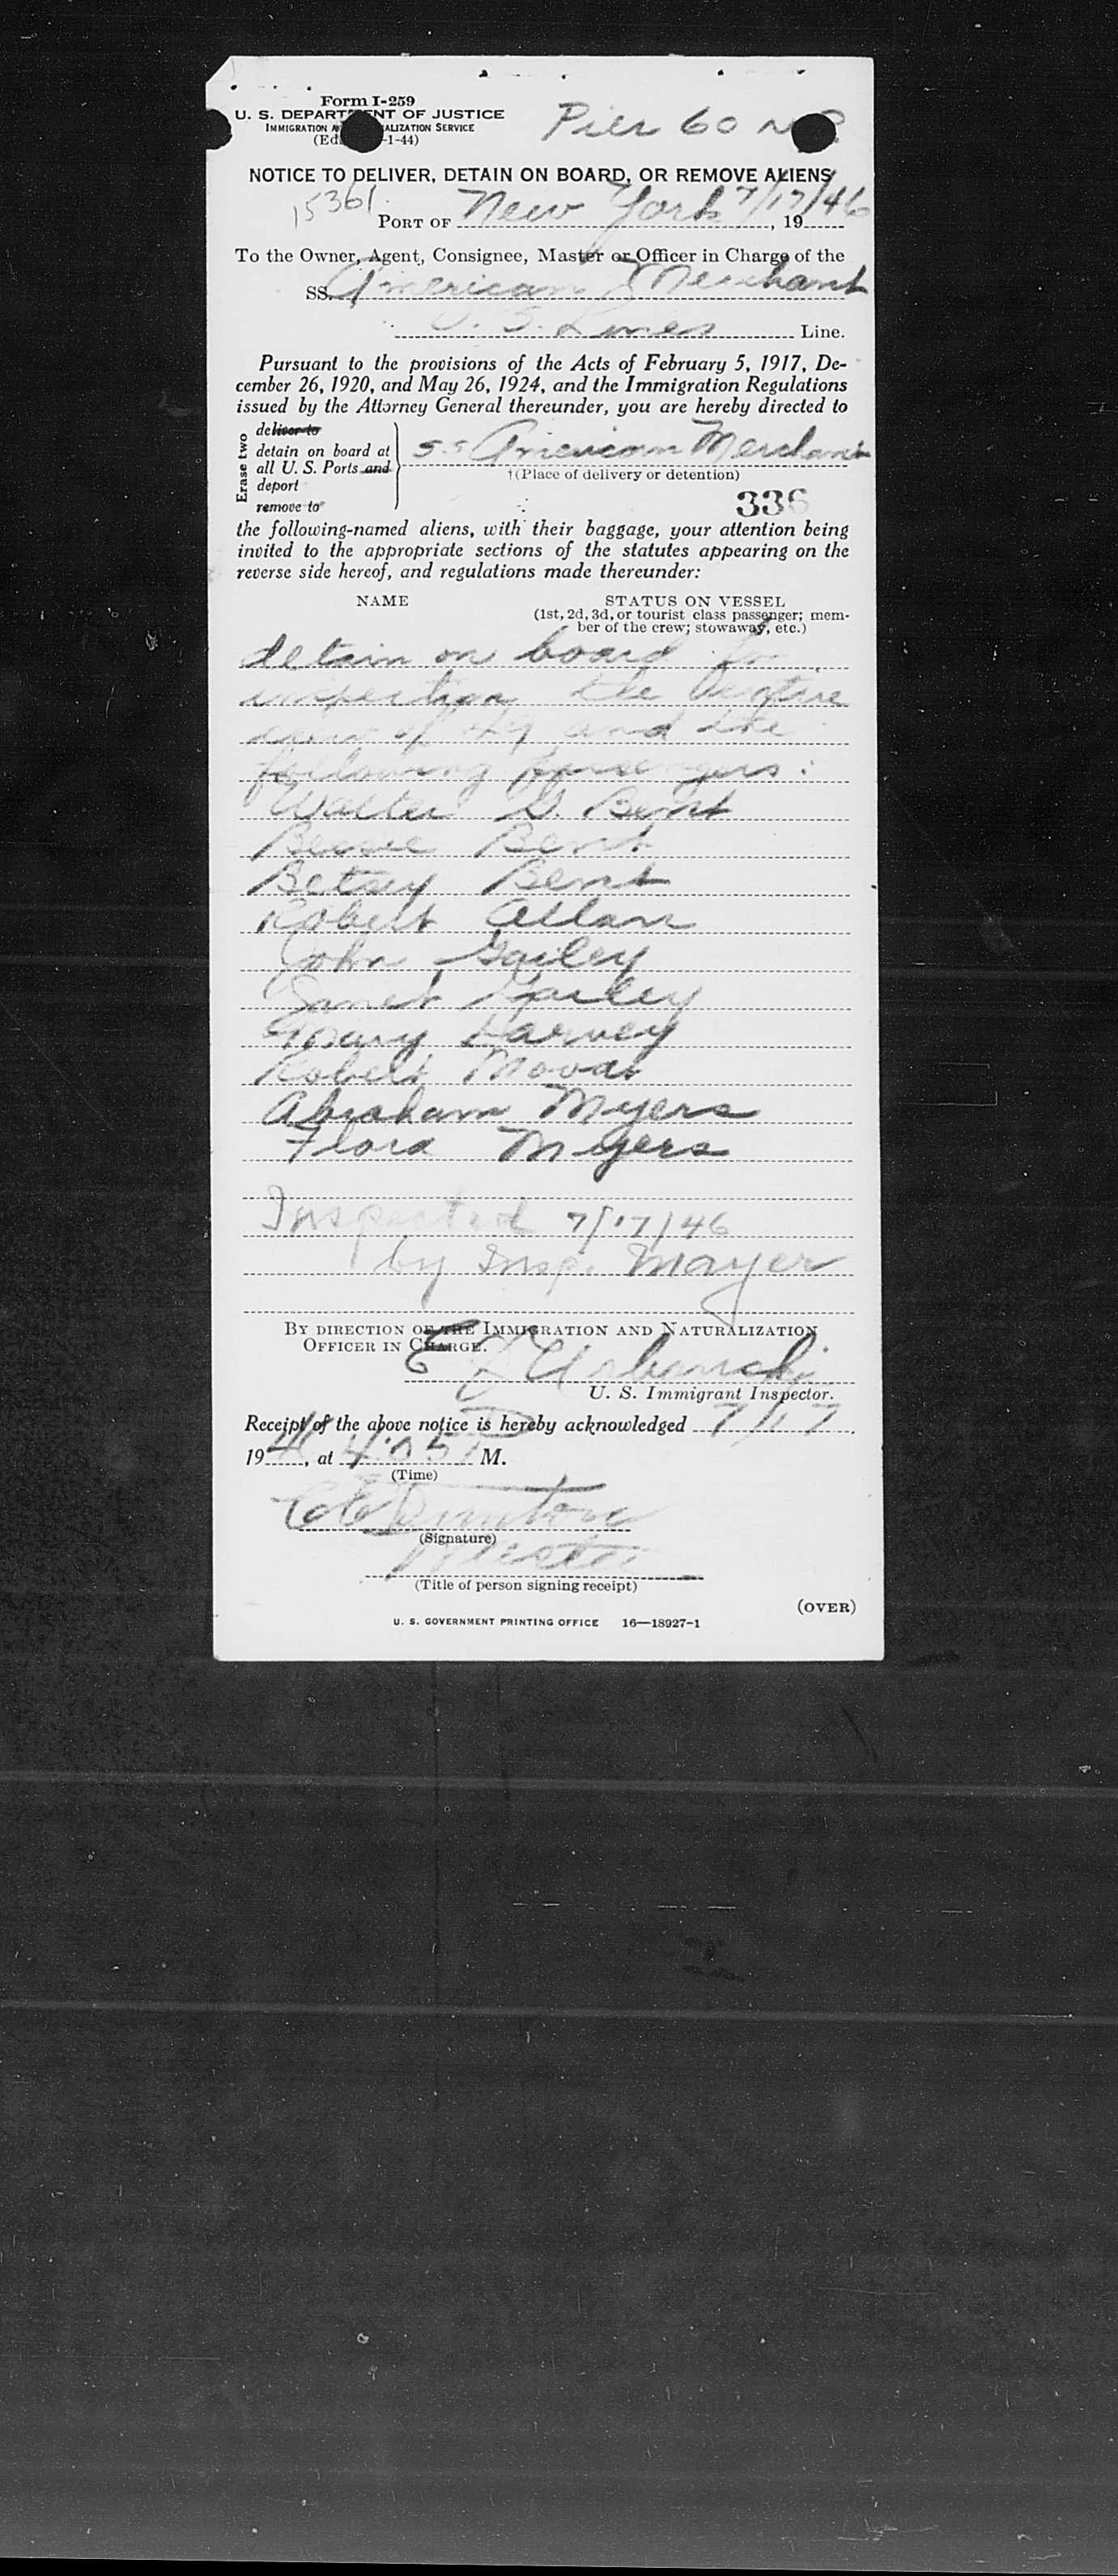 Form I-259
U. S. DEPARTMENT OF JUSTICE
IMMIGRATION NATURALIZATION SERVICE
(Ed. -1-44)
Pier 60 N R
NOTICE TO DELIVER, DETAIN ON BOARD, OR REMOVE ALIENS
15361
PORT OF New York 7/17/46, 19
To the Owner, Agent, Consignee, Master or Officer in Charge of the
SS. American Merchant
U. S. Lines Line.
Pursuant to the provisions of the Acts of February 5, 1917, De-
cember 26, 1920, and May 26, 1924, and the Immigration Regulations
issued by the Attorney General thereunder, you are hereby directed to
Erase two
deliver to
detain on board at
all U. S. Ports and
deport
remove to
SS American Merchant
†(Place of delivery or detention)
336
the following-named aliens, with their baggage, your attention being
invited to the appropriate sections of the statutes appearing on the
reverse side hereof, and regulations made thereunder:
NAME STATUS ON VESSEL
(1st, 2d, 3d, or tourist class passenger; mem-
ber of the crew; stowaway, etc.)
detain on board for
inspection the entire
crew of 49 and the
following passengers:
Walter G. Bent
Bessie Bent
Betsey Bent
Robert Allan
John Gailey
Janet Gailey
Mary Harvey
Robert
Abraham Myers
Flora Myers
Inspected 7/17/46
by Insp. Mayer
BY DIRECTION OF THE IMMIGRATION AND NATURALIZATION
OFFICER IN CHARGE.
E Urbanski
U. S. Immigrant Inspector.
Receipt of the above notice is hereby acknowledged 7/17.
19 , at M.
(Time)
(Signature)
Master
(Title of person signing receipt)
(OVER)
U. S. GOVERNMENT PRINTING OFFICE 16—18927-1